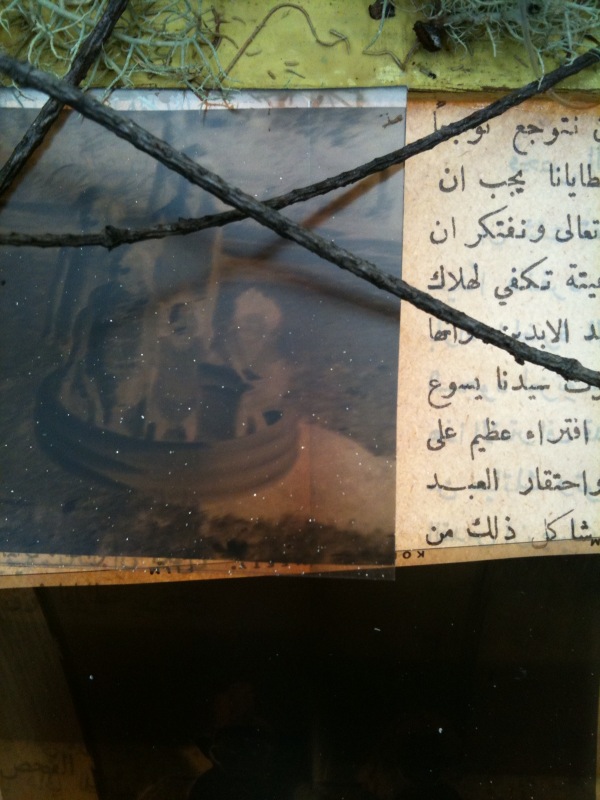 نتوجع توجعاً
طايانا يجب ان
تعالى ونفتكر ان
يتة تكفي لهلاك
د الابدين
سيدنا يسوع
افتراء عظيم على
واحتقار العبد
شاكل ذلك من
KO
الفحص